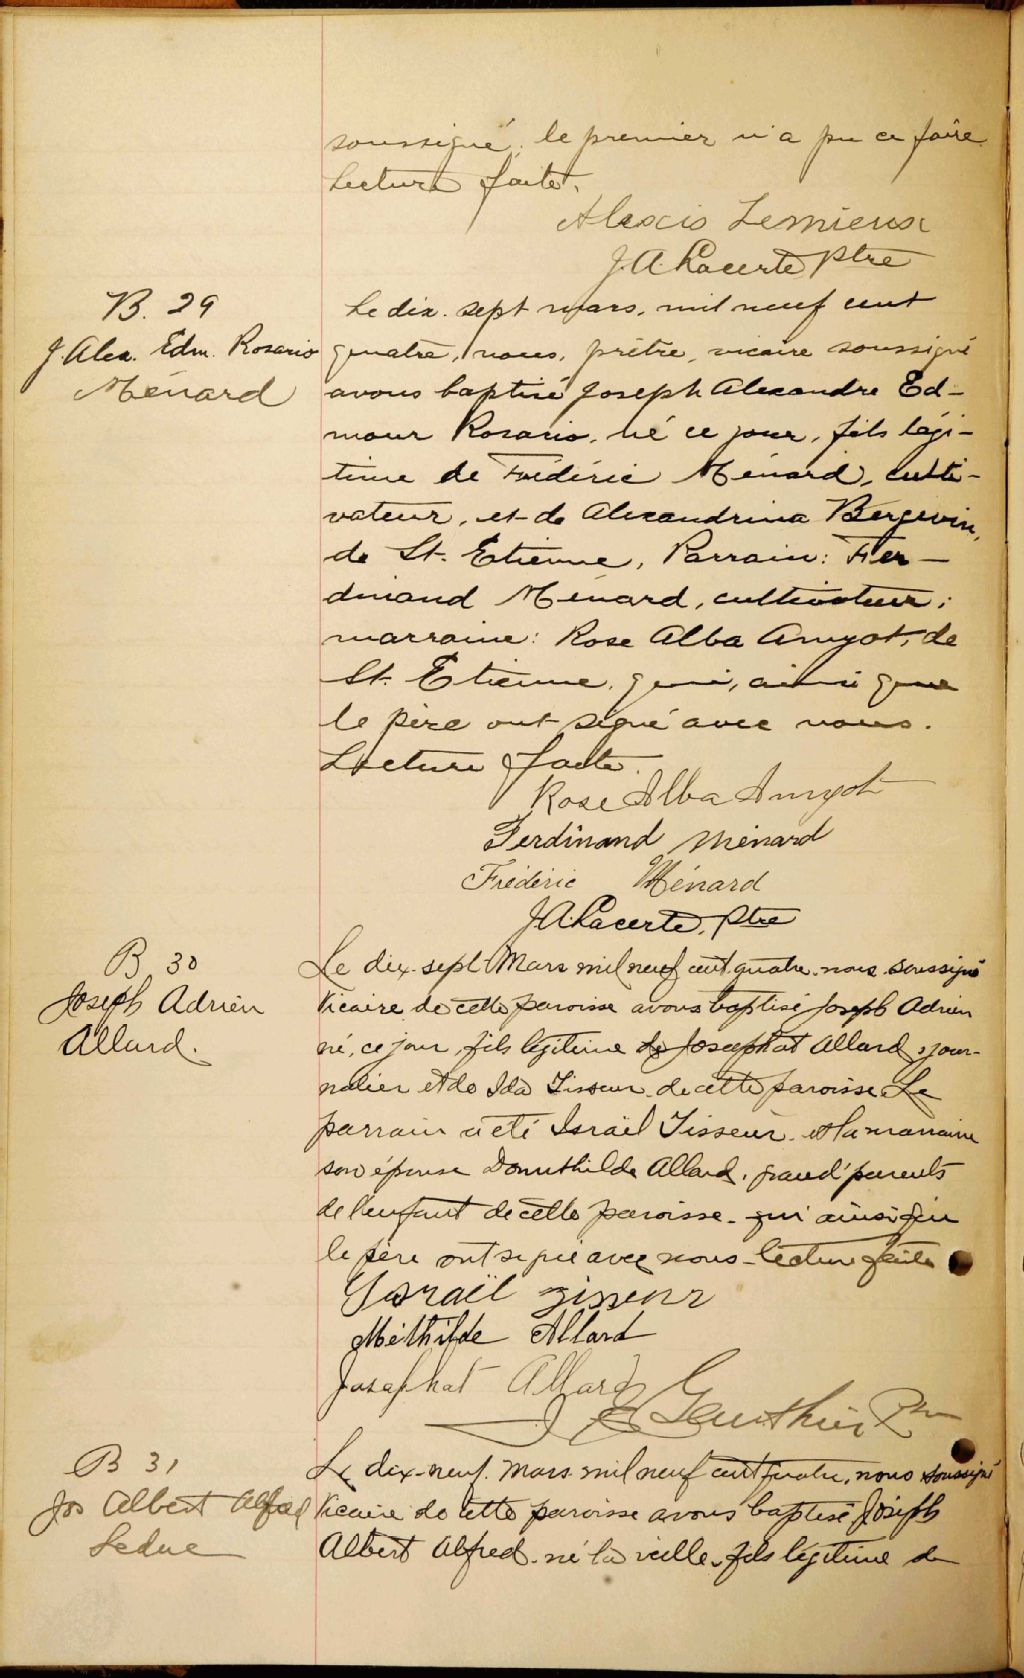 soussigné; le premier n'a pu ce faire
Lecture faite.
Alexis Lemieux
J.A. Lacerte Ptre
B. 29
J. Alex. Edm. Rosario
Ménard
Le dix-sept mars, mil neuf cent
quatre, nous, prêtre, vicaire soussigné
avons baptisé Joseph Alexandre Ed-
mour Rosario, né ce jour, fils légi-
time de Frédéric Ménard, culti-
vateur, et de Alexandrina Bergevin,
de St. Etienne, Parrain: Fer-
dinand Ménard, cultivateur;
marraine: Rose Alba Amyot, de
St. Etienne, qui, ainsi que
le père ont signé avec nous.
Lecture faite.
Rose Alba Amyot
Ferdinand Ménard
Frédéric Ménard
J.A. Lacerte, Ptre
B 30
Joseph Adrien
Allard.
Le dix-sept Mars mil neuf cent quatre nous soussigné
Vicaire de cette paroisse avons baptisé Joseph Adrien
né, ce jour, fils légitime de Josaphat Allard, jour-
nalier et de Ida Tisseur de cette paroisse Le
parrain a été Israël Tisseur et la marraine
son épouse Domithilde Allard, grand'parents
de l'enfant de cette paroisse - qui ainsi que
le père ont signé avec nous - lecture faite
Israël Tisseur
Méthilde Allard
Josaphat Allard
J E Gauthier Ptre
B 31
Jos Albert Alfred
Leduc
Le dix-neuf Mars mil neuf cent quatre, nous soussigné
Vicaire de cette paroisse avons baptisé Joseph
Albert Alfred - né la veille - fils légitime de